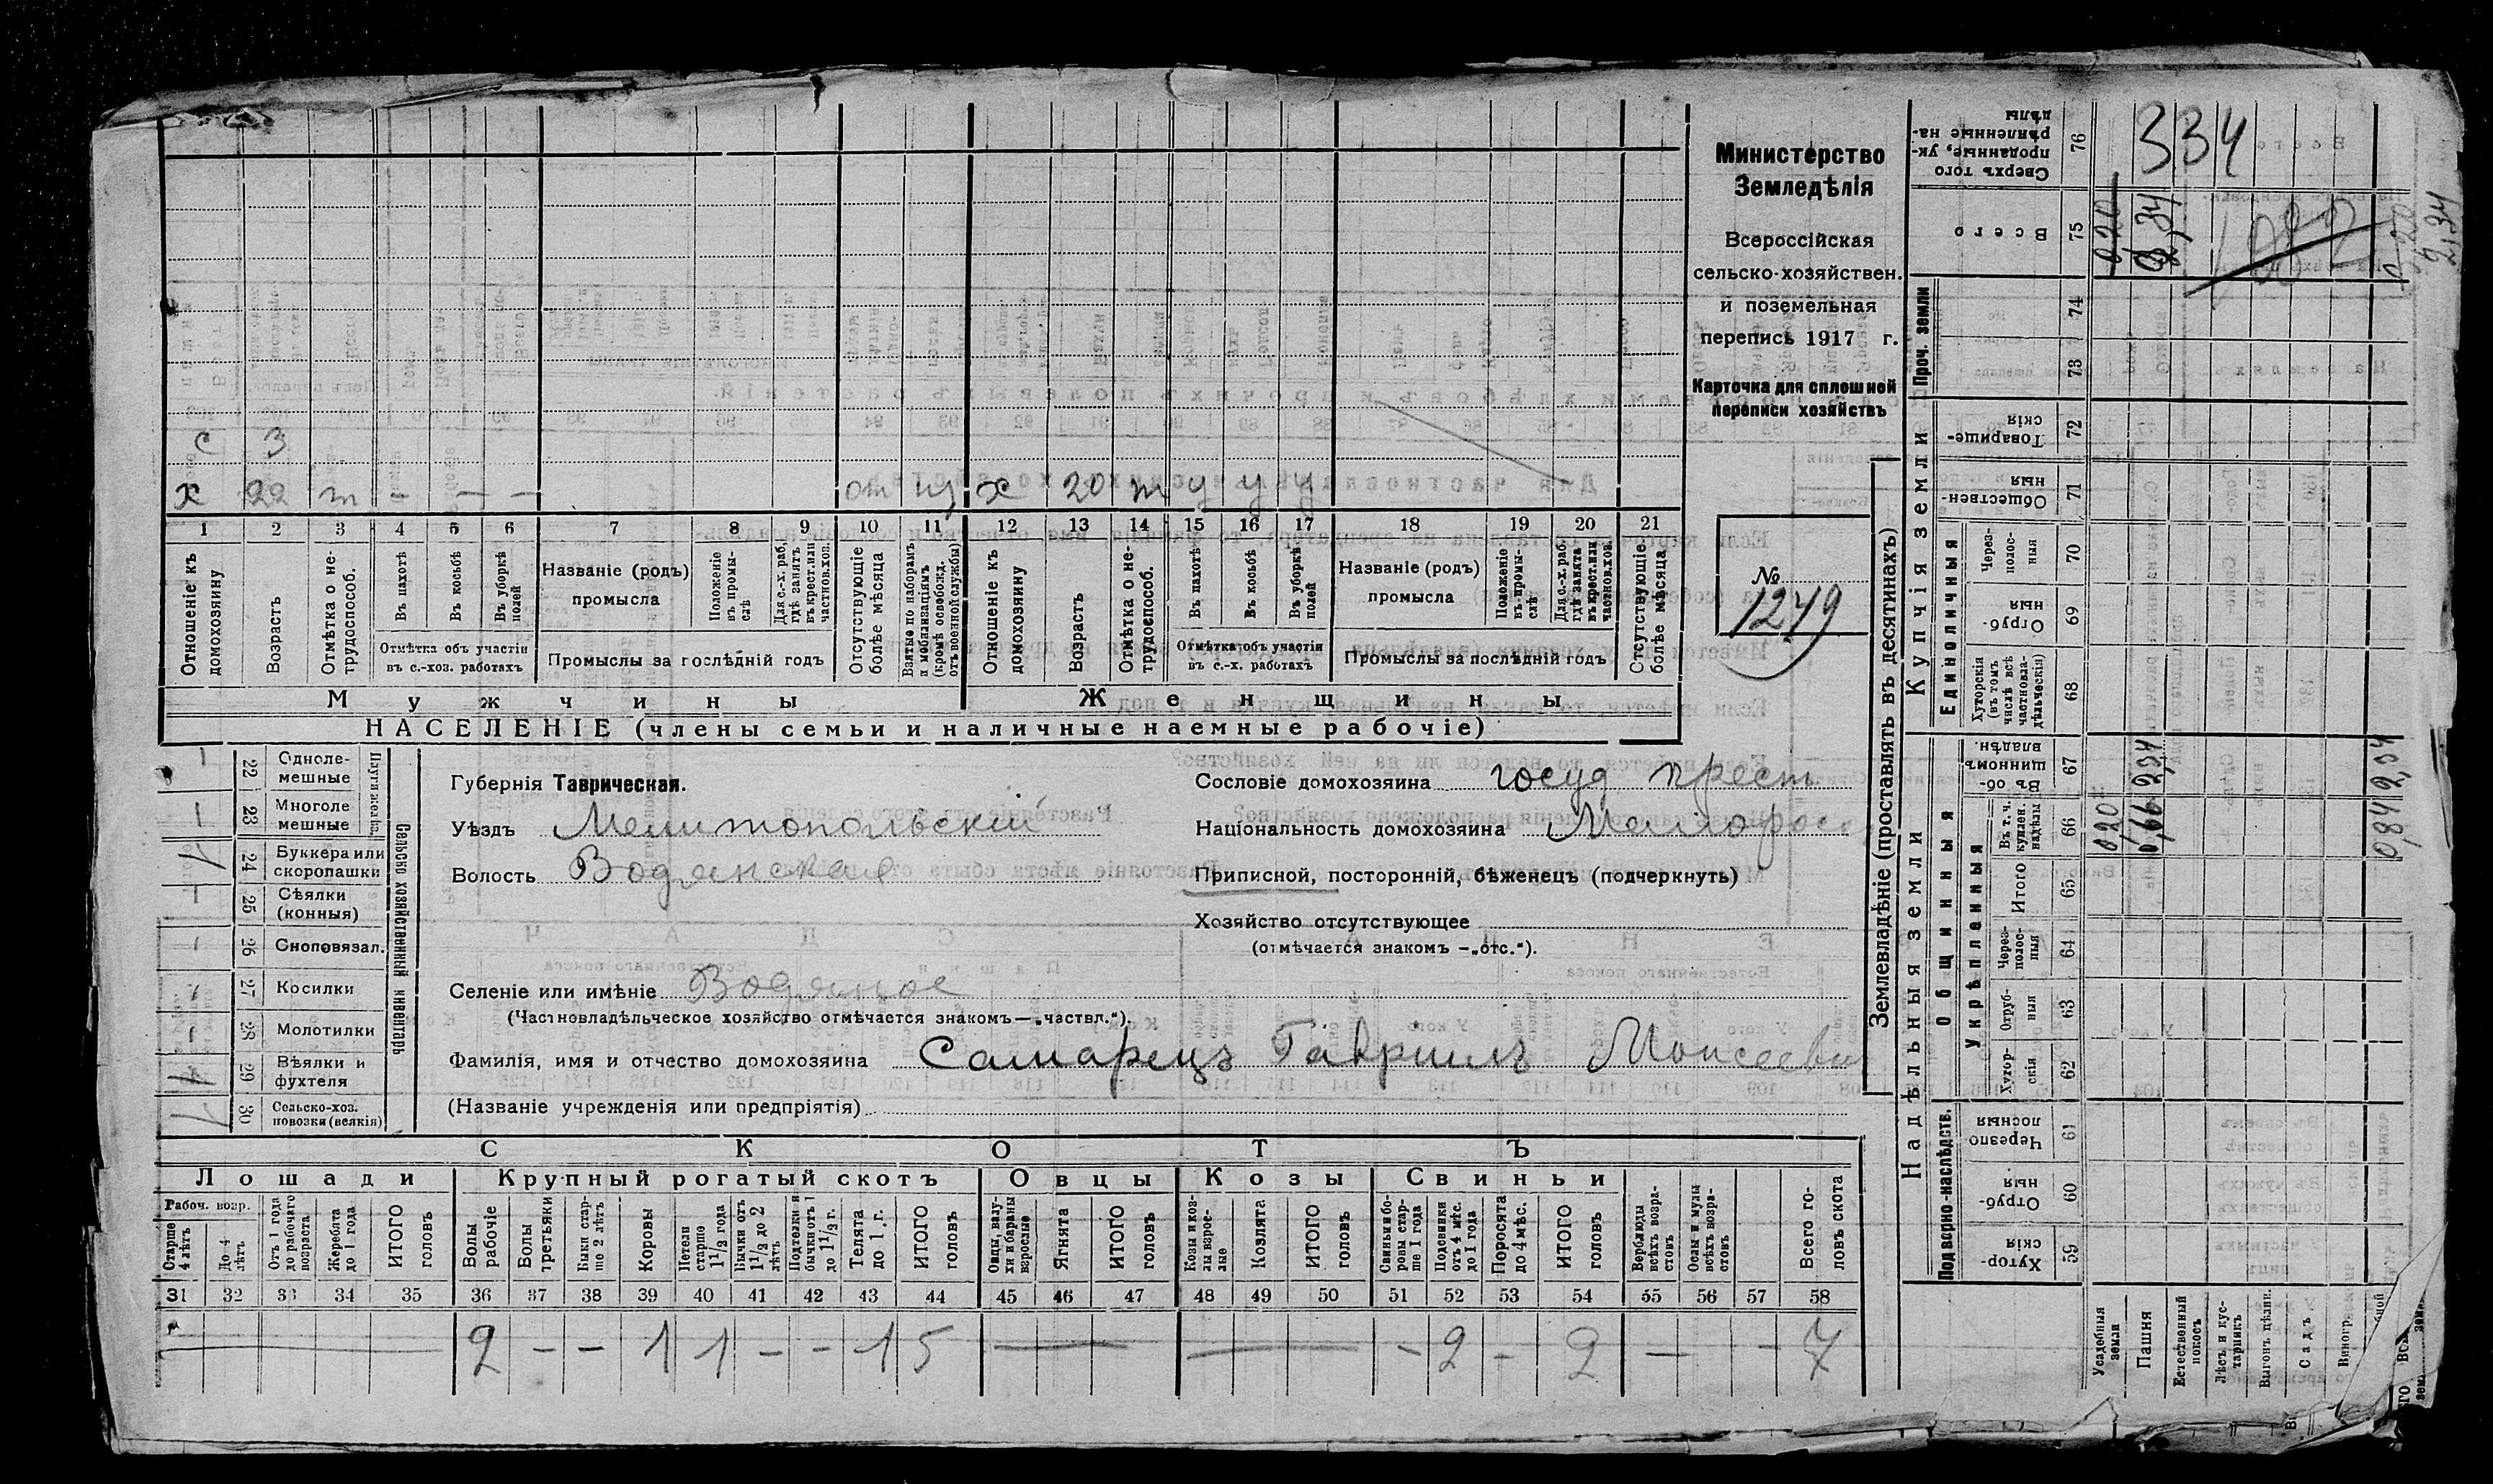 Министерство
Земледѣлія
Всероссійская
сельско-хозяйствен.
и поземельная
перепись 1917 г.
Карточка для сплошной
переписи хозяйствъ
№
1249
с 3
х 22 т – – – от х 20 т у у у
1 2 3 4 5 6 7 8 9 10 11 12 13 14 15 16 17 18 19 20 21
Отношеніе къ домохозяину
Возрастъ
Отмѣтка о нетрудоспособ.
Въ пахотѣ
Въ косьбѣ
Въ уборкѣ полей
Отмѣтка объ участіи въ с.-хоз. работахъ
Названіе (родъ) промысла
Положеніе въ промыслѣ
Для с.-х. раб. гдѣ занятъ въ крест. или частнов. хоз.
Промыслы за послѣдній годъ
Отсутствующіе болѣе мѣсяца
Взятые по наборамъ и мобилизаціямъ (кромѣ освобожд. отъ военной службы)
Отношеніе къ домохозяину
Возрастъ
Отмѣтка о нетрудоспособ.
Въ пахотѣ
Въ косьбѣ
Въ уборкѣ полей
Отмѣтка объ участіи въ с.-х. работахъ
Названіе (родъ) промысла
Положеніе въ промыслѣ
Для с.-х. раб. гдѣ занята въ крест. или частнов. хоз.
Промыслы за послѣдній годъ
Отсутствующіе болѣе мѣсяца
Мужчины Женщины
НАСЕЛЕНІЕ (члены семьи и наличные наемные рабочіе)
Сельско хозяйственный инвентарь
22 Однолемешные
23 Многолемешные
24 Буккера или скоропашки 1
25 Сѣялки (конныя)
26 Сноповязал.
27 Косилки
28 Молотилки
29 Вѣялки и фухтеля
30 Сельско-хоз. повозки (всякія) 1
Губернія Таврическая.
Уѣздъ Мелитопольскій
Волость Водянская
Селеніе или имѣніе Водяное
(Частновладѣльческое хозяйство отмѣчается знакомъ—„частвл.“).
Фамилія, имя и отчество домохозяина Самарецъ Гавриилъ Моисееви
(Названіе учрежденія или предпріятія)
Сословіе домохозяина госуд крест
Національность домохозяина Малорос
Приписной, посторонній, бѣженецъ (подчеркнуть)
Хозяйство отсутствующее
(отмѣчается знакомъ —„отс.“).
СКОТЪ
Лошади Крупный рогатый скотъ Овцы Козы Свиньи
Рабоч. возр.
Старше 4 лѣтъ
До 4 лѣтъ
Отъ 1 года до рабочаго возраста
Жеребята до 1 года
ИТОГО головъ
Волы рабочіе
Волы третьяки
Быки старше 2 лѣтъ
Коровы
Нетели старше 1 1/2 года
Бычки отъ 1 1/2 до 2 лѣтъ
Подтелки и бычки отъ 1 до 1 1/2 г.
Телята до 1 г.
ИТОГО головъ
Овцы, валухи и бараны взрослые
Ягнята
ИТОГО головъ
Козы и козлы взрослые
Козлята
ИТОГО головъ
Свиньи и боровы старше 1 года
Подсвинки отъ 4 мѣс. до 1 года
Поросята до 4 мѣс.
ИТОГО головъ
Верблюды всѣхъ возрастовъ
Ослы и мулы всѣхъ возрастовъ
Всего головъ скота
31 32 33 34 35 36 37 38 39 40 41 42 43 44 45 46 47 48 49 50 51 52 53 54 55 56 57 58
2 – – 1 1 – – 1 5 — — – 2 – 2 — – 7
Землевладѣніе (проставлять въ десятинахъ)
Надѣльныя земли
Купчія земли
Проч. земли
Подворно-наслѣдств.
Общинныя
Укрѣпленныя
Единоличныя
59 Хуторскія
60 Отрубныя
61 Черезполосныя
62 Хуторскія
63 Отрубныя
64 Черезполосныя
65 Итого
66 Въ т. ч. куплен. надѣлы 0,20 0,84
67 Въ общинномъ владѣн. 2,34 2,34
68 Хуторскія (въ томъ числѣ всѣ частновладѣльческія)
69 Отрубныя
70 Черезполосныя
71 Общественныя
72 Товарищескія
73
74
75 Всего 0 20 2,34
76 Сверхъ того проданные, укрѣпленные надѣлы 334
0 20
2,34
Усадебныя земли
Пашня
Естественный покосъ
Лѣсъ и кустарникъ
Выгонъ цѣлин.
Садъ
Виногр.